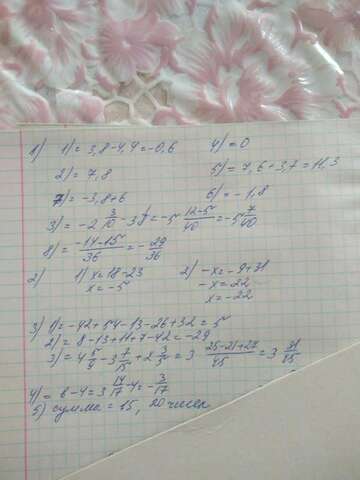 1) 1)= 3,8-4,4=-0,6 4)=0
2)= 7,8 5)= 7,6+3,7=11,3
7)= -3,8+6 6)= -1,8
3)= -2 3/10 - 3 = -5 12-5/40 = -5 7/40
8)= -14-15/36 = - 29/36
2) 1) x=18-23 2) -x=-9+31
x=-5 -x=22
x=-22
3) 1)= -42+54-13-26+32=5
2)= 8-13+11+7-42=-29
3)= 4 5/9 - 3 7/15 + 2 3/5 = 3 25-21+27/45 = 3 31/45
4)= в-4=3 14/17-4=- 3/17
5) сумма = 15, 20 чисел